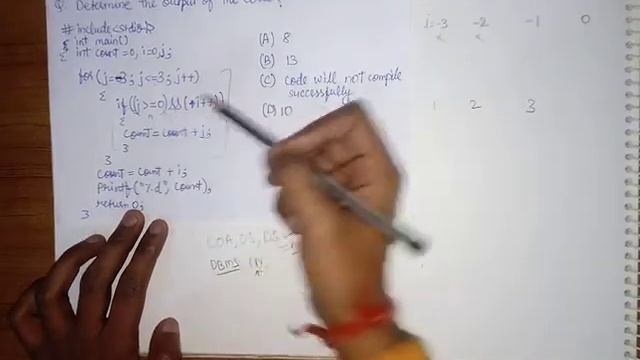 Q Determine the output of the code?
#include<stdio.h>
int main()
{ int count=0, i=0, j;
for(j=-3; j<=3; j++)
{
if((j>=0)&&(i++))
{
count = count + j;
}
}
count = count + i;
printf("%d", count);
return 0;
}
(A) 8
(B) 13
(C) code will not compile
successfully
(D) 10
COA, OS, DS
DBMS
j=-3 -2 -1 0
1 2 3